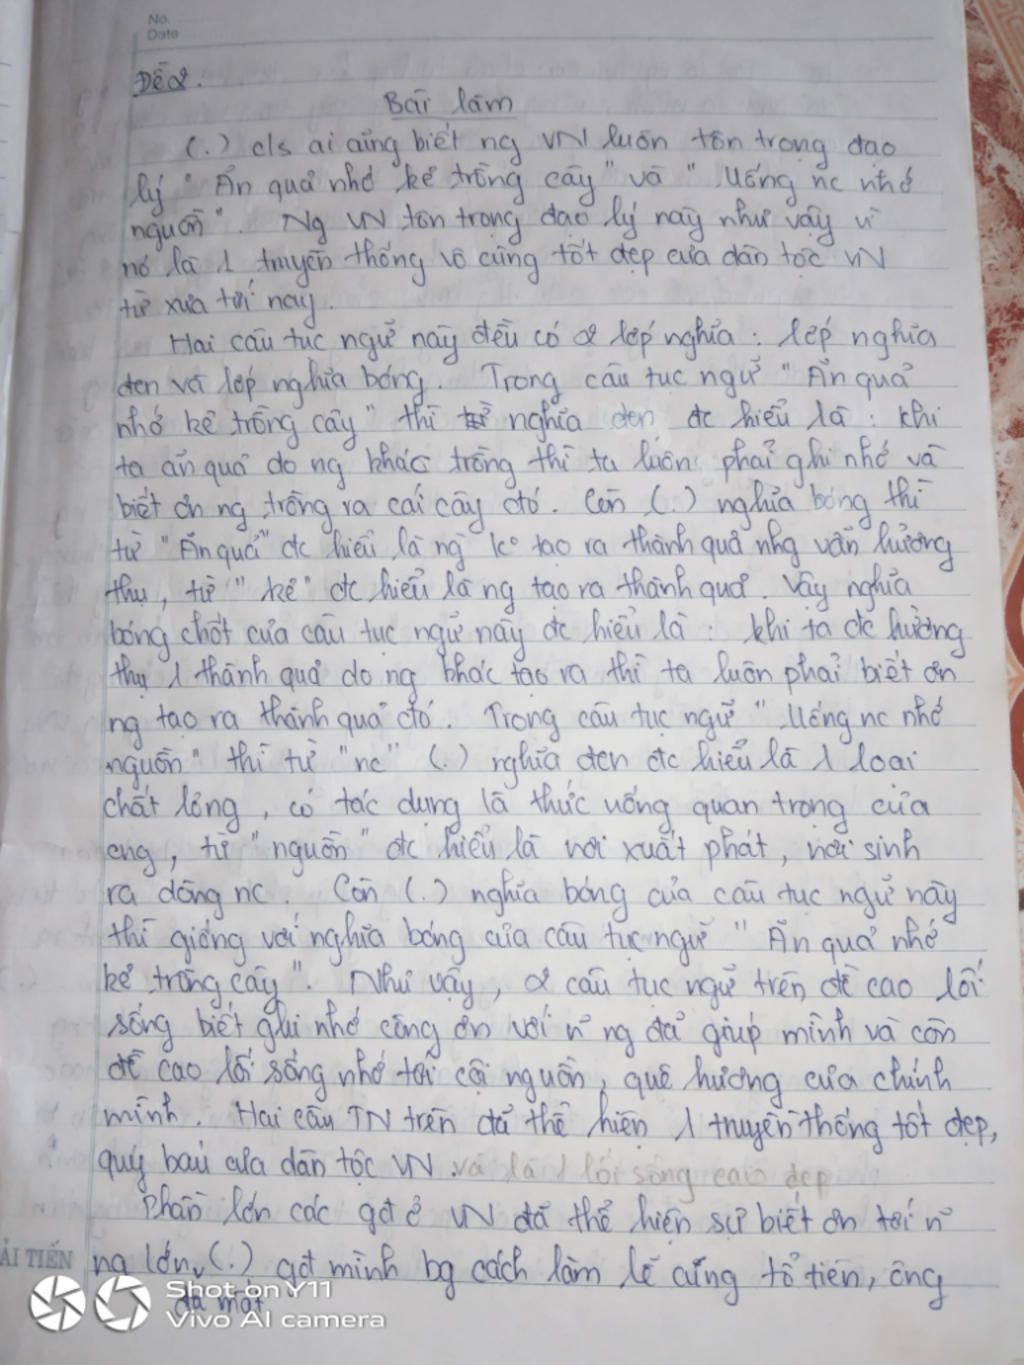 No.
Date
Đề 2.
Bài làm
(.) cls ai cũng biết ng VN luôn tôn trọng đạo
lý " Ăn quả nhớ kẻ trồng cây " và " Uống nc nhớ
nguồn ". Ng VN tôn trọng đạo lý này như vậy vì
nó là 1 truyền thống vô cùng tốt đẹp của dân tộc VN
từ xưa tới nay.
Hai câu tục ngữ này đều có 2 lớp nghĩa : lớp nghĩa
đen và lớp nghĩa bóng. Trong câu tục ngữ " Ăn quả
nhớ kẻ trồng cây " thì nghĩa đen đc hiểu là : khi
ta ăn quả do ng khác trồng thì ta luôn phải ghi nhớ và
biết ơn ng trồng ra cái cây đó. Còn (.) nghĩa bóng thì
từ " Ăn quả " đc hiểu là ng k° tạo ra thành quả nhg vẫn hưởng
thụ, từ " kẻ " đc hiểu là ng tạo ra thành quả. Vậy nghĩa
bóng chốt của câu tục ngữ này đc hiểu là : khi ta đc hưởng
thụ 1 thành quả do ng khác tạo ra thì ta luôn phải biết ơn
ng tạo ra thành quả đó. Trong câu tục ngữ " Uống nc nhớ
nguồn " thì từ " nc " (.) nghĩa đen đc hiểu là 1 loại
chất lỏng, có tác dụng là thức uống quan trọng của
cng, từ " nguồn " đc hiểu là nơi xuất phát, nơi sinh
ra dòng nc. Còn (.) nghĩa bóng của câu tục ngữ này
thì giống với nghĩa bóng của câu tục ngữ " Ăn quả nhớ
kẻ trồng cây ". Như vậy, 2 câu tục ngữ trên đề cao lối
sống biết ghi nhớ công ơn với n~ ng đã giúp mình và còn
đề cao lối sống nhớ tới cội nguồn, quê hương của chính
mình. Hai câu TN trên đã thể hiện 1 truyền thống tốt đẹp,
quý báu của dân tộc VN và là 1 lối sống cao đẹp
Phần lớn các gđ ở VN đã thể hiện sự biết ơn tới n~
ng lớn (.) gđ mình bg cách làm lễ cúng tổ tiên, ông
đã mất
ẢI TIẾN
Shot on Y11
Vivo AI camera